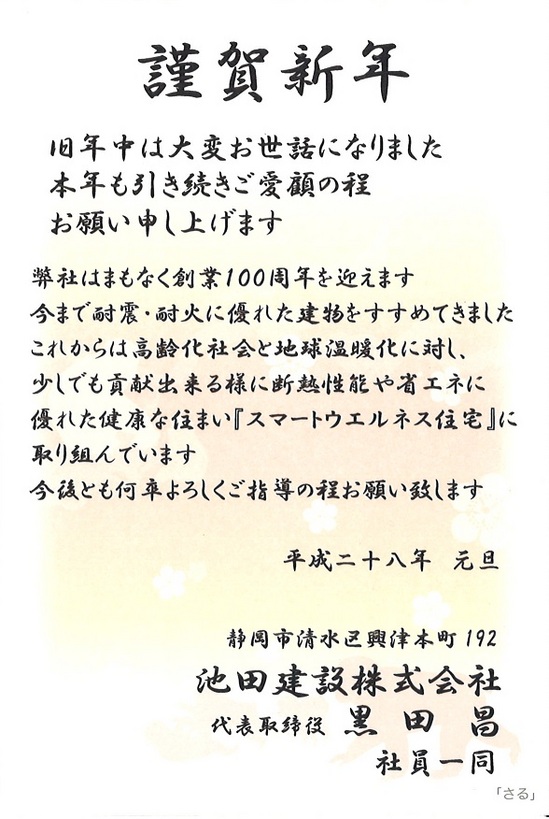 謹賀新年
旧年中は大変お世話になりました
本年も引き続きご愛顧の程
お願い申し上げます
弊社はまもなく創業100周年を迎えます
今まで耐震・耐火に優れた建物をすすめてきました
これからは高齢化社会と地球温暖化に対し、
少しでも貢献出来る様に断熱性能や省エネに
優れた健康な住まい『スマートウエルネス住宅』に
取り組んでいます
今後とも何卒よろしくご指導の程お願い致します
平成二十八年 元旦
静岡市清水区興津本町192
池田建設株式会社
代表取締役 黒田 昌
社員一同
「さる」